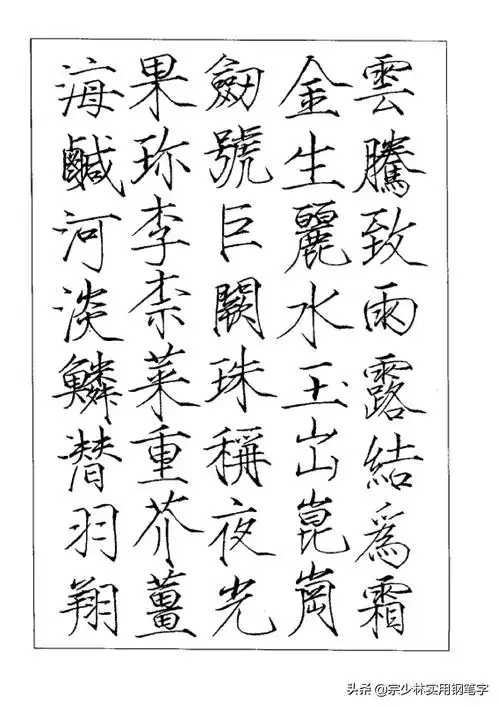 雲騰致雨露結爲霜
金生麗水玉出崑崗
劒號巨闕珠稱夜光
果珎李柰菜重芥薑
海鹹河淡鱗朁羽翔
头条 @宗少林实用钢笔字